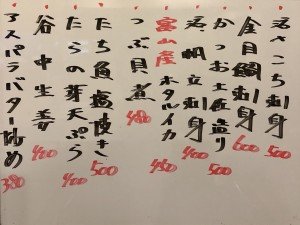 活さごち刺身 500
金目鯛刺身 600
かつお土佐造り 500
活帆立刺身 400
富山産ホタルイカ 450
つぶ貝煮 480
たち魚塩焼き 500
たらの芽天ぷら 400
谷中生姜 400
アスパラバター炒め 380